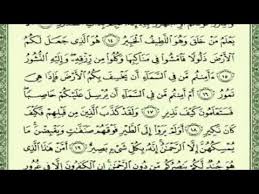 يَعْلَمُ مَنْ خَلَقَ وَهُوَ اللَّطِيفُ الْخَبِيرُ ١٤ هُوَ الَّذِي جَعَلَ لَكُمُ
الْأَرْضَ ذَلُولًا فَامْشُوا فِي مَنَاكِبِهَا وَكُلُوا مِن رِّزْقِهِ وَإِلَيْهِ النُّشُورُ
١٥ ءَأَمِنتُم مَّن فِي السَّمَاءِ أَن يَخْسِفَ بِكُمُ الْأَرْضَ فَإِذَا هِيَ
تَمُورُ ١٦ أَمْ أَمِنتُم مَّن فِي السَّمَاءِ أَن يُرْسِلَ عَلَيْكُمْ حَاصِبًا
فَسَتَعْلَمُونَ كَيْفَ نَذِيرِ ١٧ وَلَقَدْ كَذَّبَ الَّذِينَ مِن قَبْلِهِمْ فَكَيْفَ كَانَ
نَكِيرِ ١٨ أَوَلَمْ يَرَوْا إِلَى الطَّيْرِ فَوْقَهُمْ صَٰفَّٰتٍ وَيَقْبِضْنَ مَا
يُمْسِكُهُنَّ إِلَّا الرَّحْمَٰنُ إِنَّهُ بِكُلِّ شَيْءٍ بَصِيرٌ ١٩ أَمَّنْ هَٰذَا الَّذِي
هُوَ جُندٌ لَّكُمْ يَنصُرُكُم مِّن دُونِ الرَّحْمَٰنِ إِنِ الْكَٰفِرُونَ إِلَّا فِي غُرُورٍ